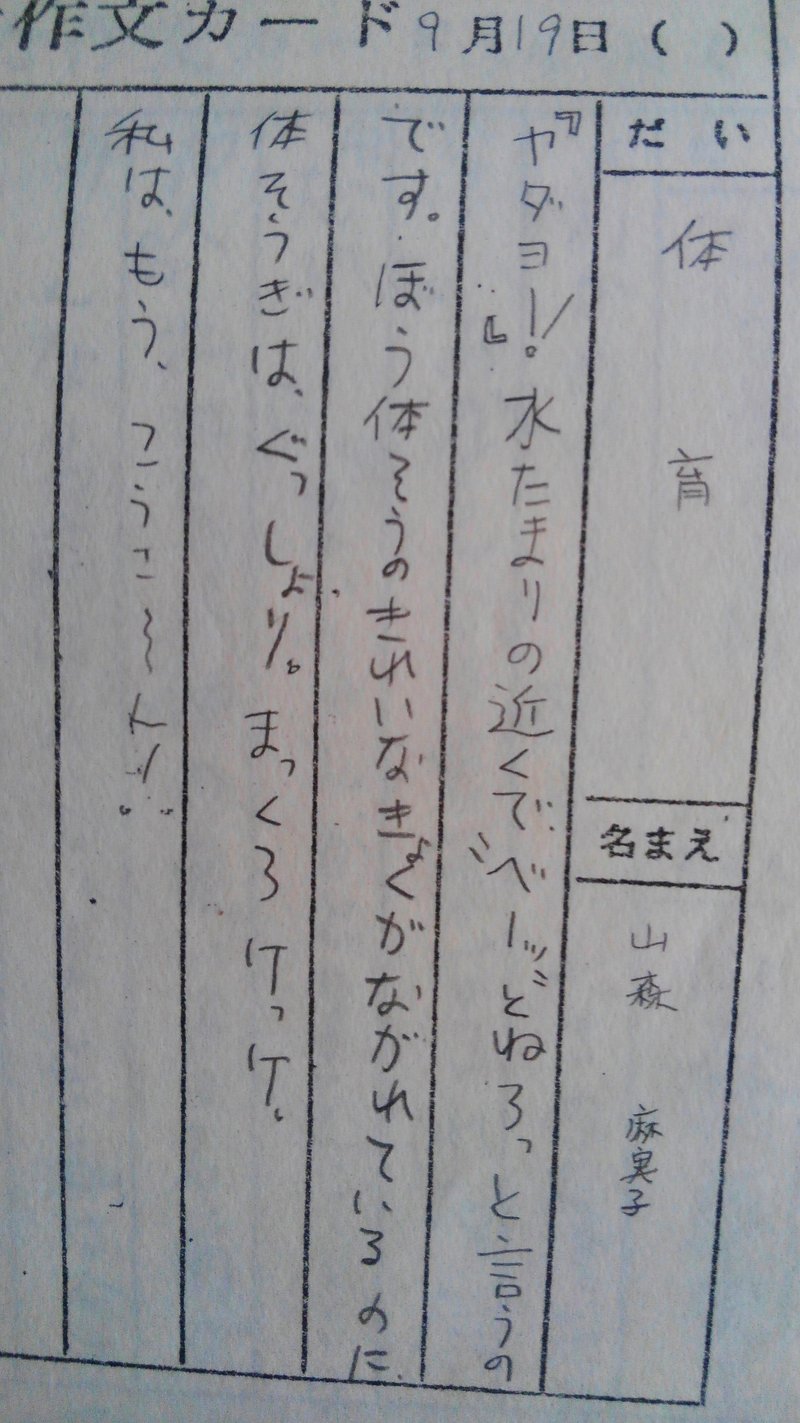 作文カード 9月19日（ ）
だい
体育
名まえ
山森 麻実子
『ヤダヨー!』水たまりの近くで“べーッ”とねろっと言うの
です。ぼう体そうのきれいなきょくがながれているのに
体そうぎは、ぐっしょり。まっくろけっけ。
私は、もう、こうこ〜〜ん!!